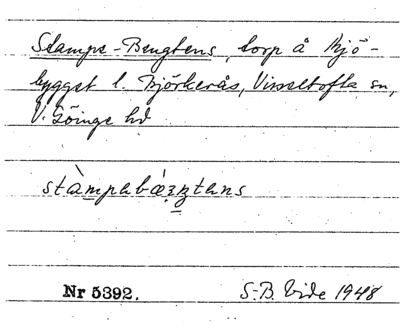 Stamps-Bengtens, torp å Mjö-
bygget l. Björkerås, Visseltofta sn,
V. Göinge hd
stàmpsbæ̀ŋtens
Nr 5392.
S.-B. Vide 1948